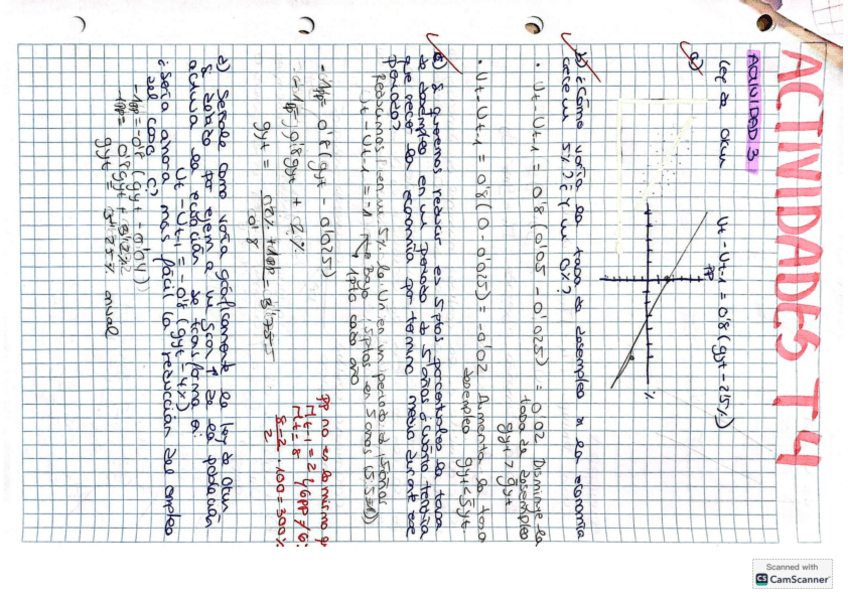 ACTIVIDADES T4
ACTIVIDAD 3
a) Ley de Okun Ut - Ut-1 = 0'8 (gyt - 2'5%)
PP
%
b) ¿Cómo varía la tasa de desempleo si la economía
crece un 5%? ¿Y un 0%?
• Ut - Ut-1 = 0'8 (0'05 - 0'025) = 0'02 Disminuye la
tasa de desempleo
gyt > g̅yt
• Ut - Ut-1 = 0'8 (0 - 0'025) = -0'02 Aumenta la tasa
desempleo gyt < g̅yt.
c) Si queremos reducir en 5 ptos porcentuales la tasa
de desempleo en un periodo de 5 años ¿cuánto tendría
que crecer la economía por término medio durante ese
periodo?
Reducimos en un 5% la Un en un periodo de 5 años
Ut - Ut-1 = -1 Bajo 5 ptos en 5 años
1 pto cada año
-1pp = 0'8 (gyt - 0'025)
-1pp = 0'8 gyt + 0'2%
gyt =
0'8
PP no es lo mismo q %
Mt-1 = 2
Mt = 8
8-2
2
· 100 = 300%
d) Señale como varía gráficamente la ley de Okun
si
actual la ecuación se transforma en:
Ut - Ut-1 = -0'8 (gyt - 4%)
¿Sería ahora más fácil la reducción del empleo
del caso c)?
-1pp = -0'8 (gyt - 0'04)
gyt = 5'25% anual
Scanned with
CS CamScanner